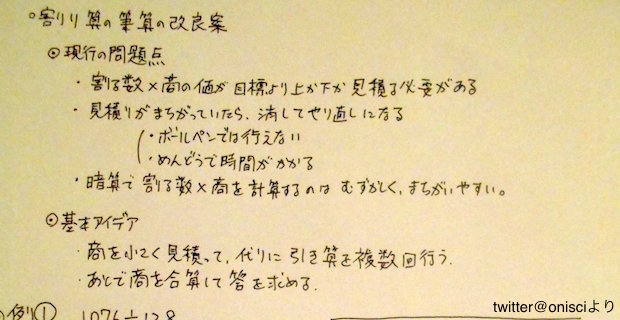 ○割り算の筆算の改良案
⊙現行の問題点
・割る数×商の値が目標より上か下か見積る必要がある
・見積りがまちがっていたら、消してやり直しになる
・ボールペンでは行えない
・めんどうで時間がかかる
・暗算で割る数×商を計算するのはむずかしく、まちがいやすい。
⊙基本アイデア
・商を小さく見積って、代りに引き算を複数回行う.
・あとで商を合算して答を求める.
例① 1076÷128
twitter@onisciより